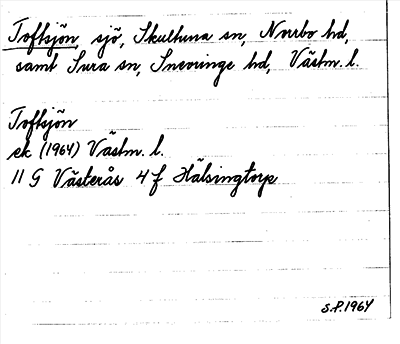 Toftsjön, sjö, Skultuna sn, Norrbo hd,
samt Sura sn, Snevringe hd, Västm. l.
Toftsjön
ek (1964) Västm. l.
11 G Västerås 4 f Hälsingtorp
S.P. 1964